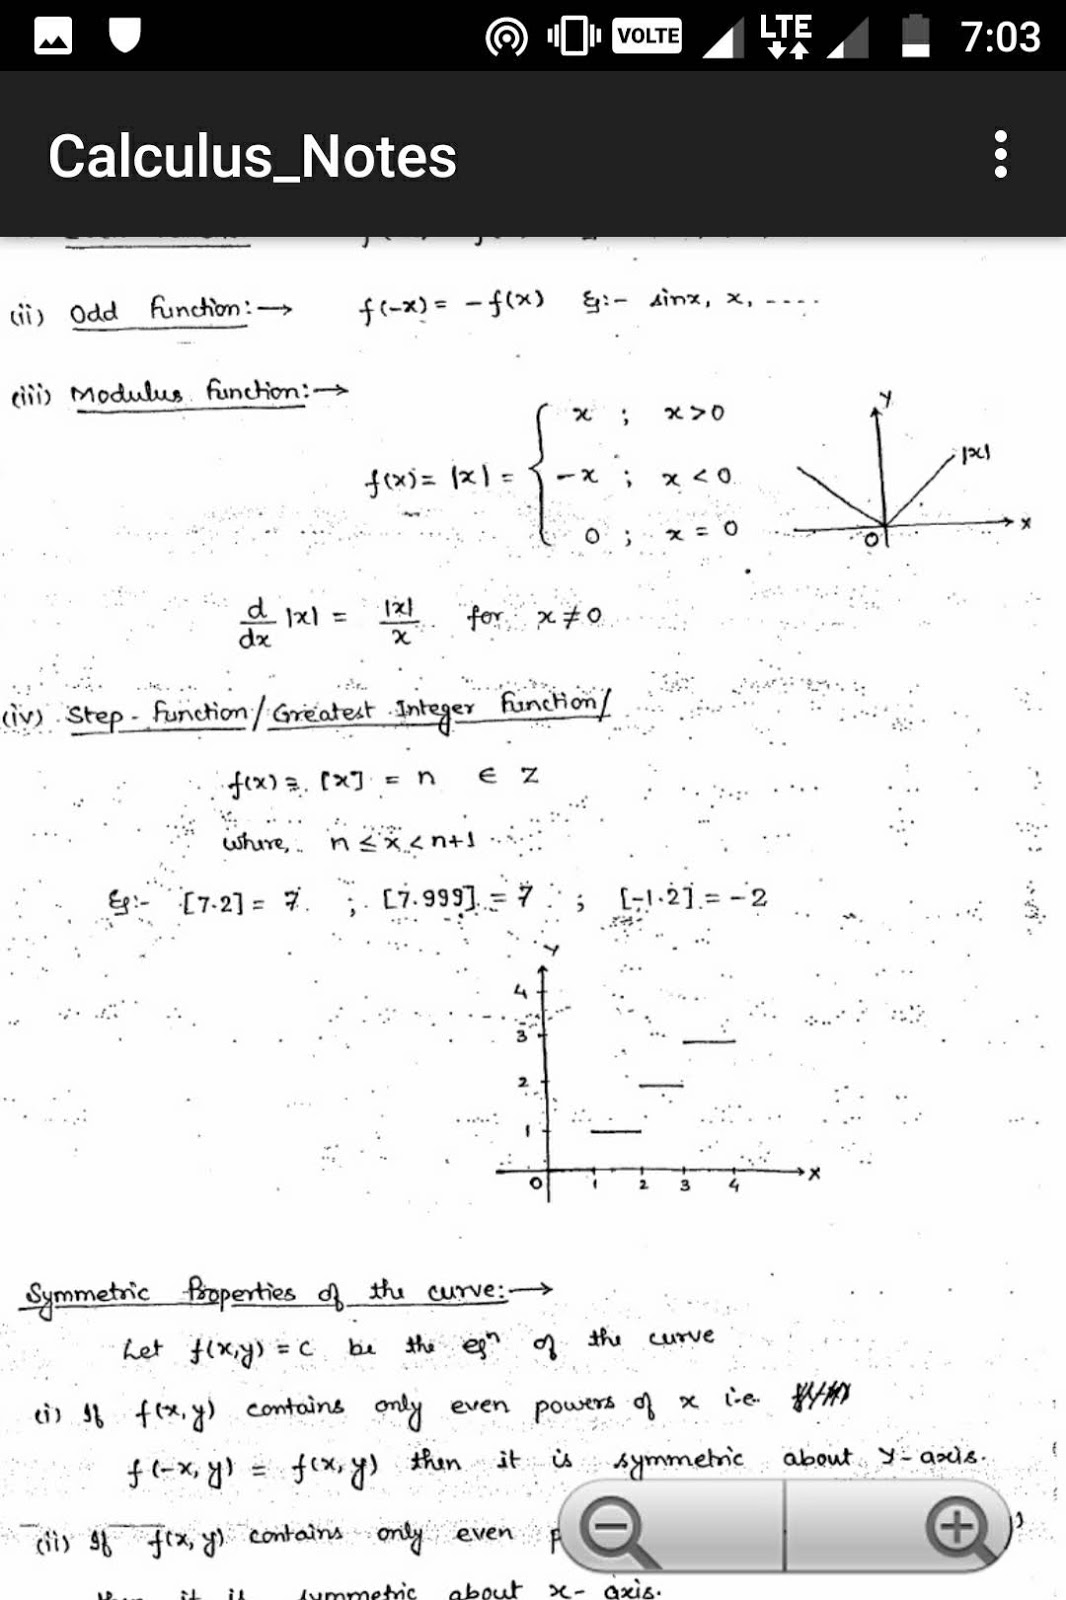 VOLTE LTE 7:03
Calculus_Notes
(ii) Odd function:→ f(-x) = -f(x) Eg:- sinx, x, ----
(iii) Modulus function:→
f(x) = |x| = { x ; x>0
-x ; x<0
0 ; x = 0
Y
|x|
X
O
d/dx |x| = |x|/x for x≠0
(iv) Step-function/Greatest Integer function/
f(x) = [x] = n ∈ Z
where, n ≤ x < n+1
Eg:- [7.2] = 7 ; [7.999] = 7 ; [-1.2] = -2
Y
4
3
2
1
O 1 2 3 4 X
Symmetric Properties of the curve:→
Let f(x,y) = c be the eqⁿ of the curve
(i) If f(x,y) contains only even powers of x i.e.
f(-x,y) = f(x,y) then it is symmetric about Y-axis.
(ii) If f(x,y) contains only even
then it is symmetric about x-axis.